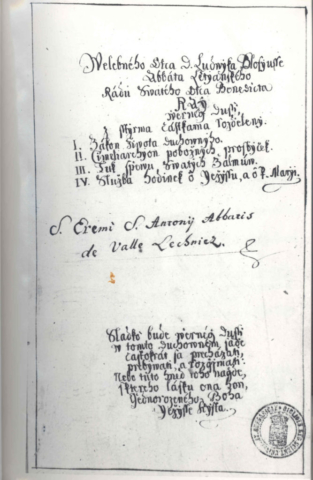 Welebného Otca D. Ludwyka Blosyusse
Abbáta Letyanského
Rádu Swatého Otca Benedicta
Ráy
wernég Dussi
Z sstyrma Cástkama rozdeleny.
I. Zákon Ziwota duchowného,
II. Enchirydyon pobožnych, prosbyček.
III. Zuk spewu, Swatych Zalmúw.
IV. Služba hodinek o Gežyssu, a o P. Maryi.
S. Eremi S. Antonij Abbatis
de Valle Lechnicz.
Sladko bude wernég Dussi
w tomto duchownem, jáge
častokrat ja prechazati,
prebywati, a rozgimati.
Nebe tuto hned toho nagde,
z ktereho lásku ona hori,
Gednorozeného Boha
Gežysse Krysta.